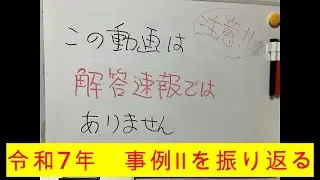 注意!!
この動画は
解答速報では
ありません
令和7年 事例Ⅱを振り返る